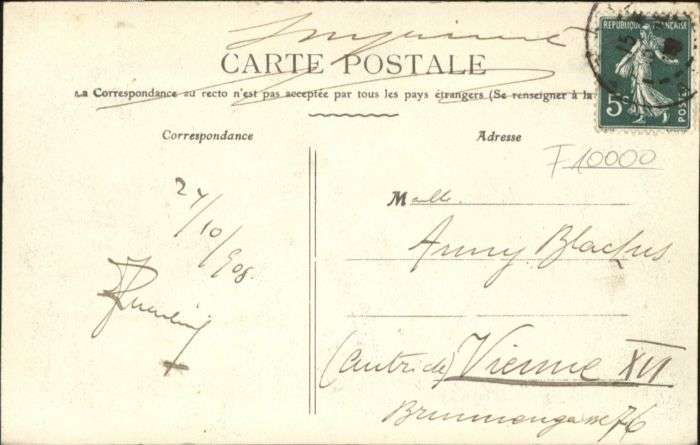 Imprimé
CARTE POSTALE
La Correspondance au recto n'est pas acceptée par tous les pays étrangers (Se renseigner à la
REPUBLIQUE FRANÇAISE
5c
POSTES
Correspondance
Adresse
F 10000
24/10/908
Melle
Anny Blachus
(Autriche) Vienne XII
76